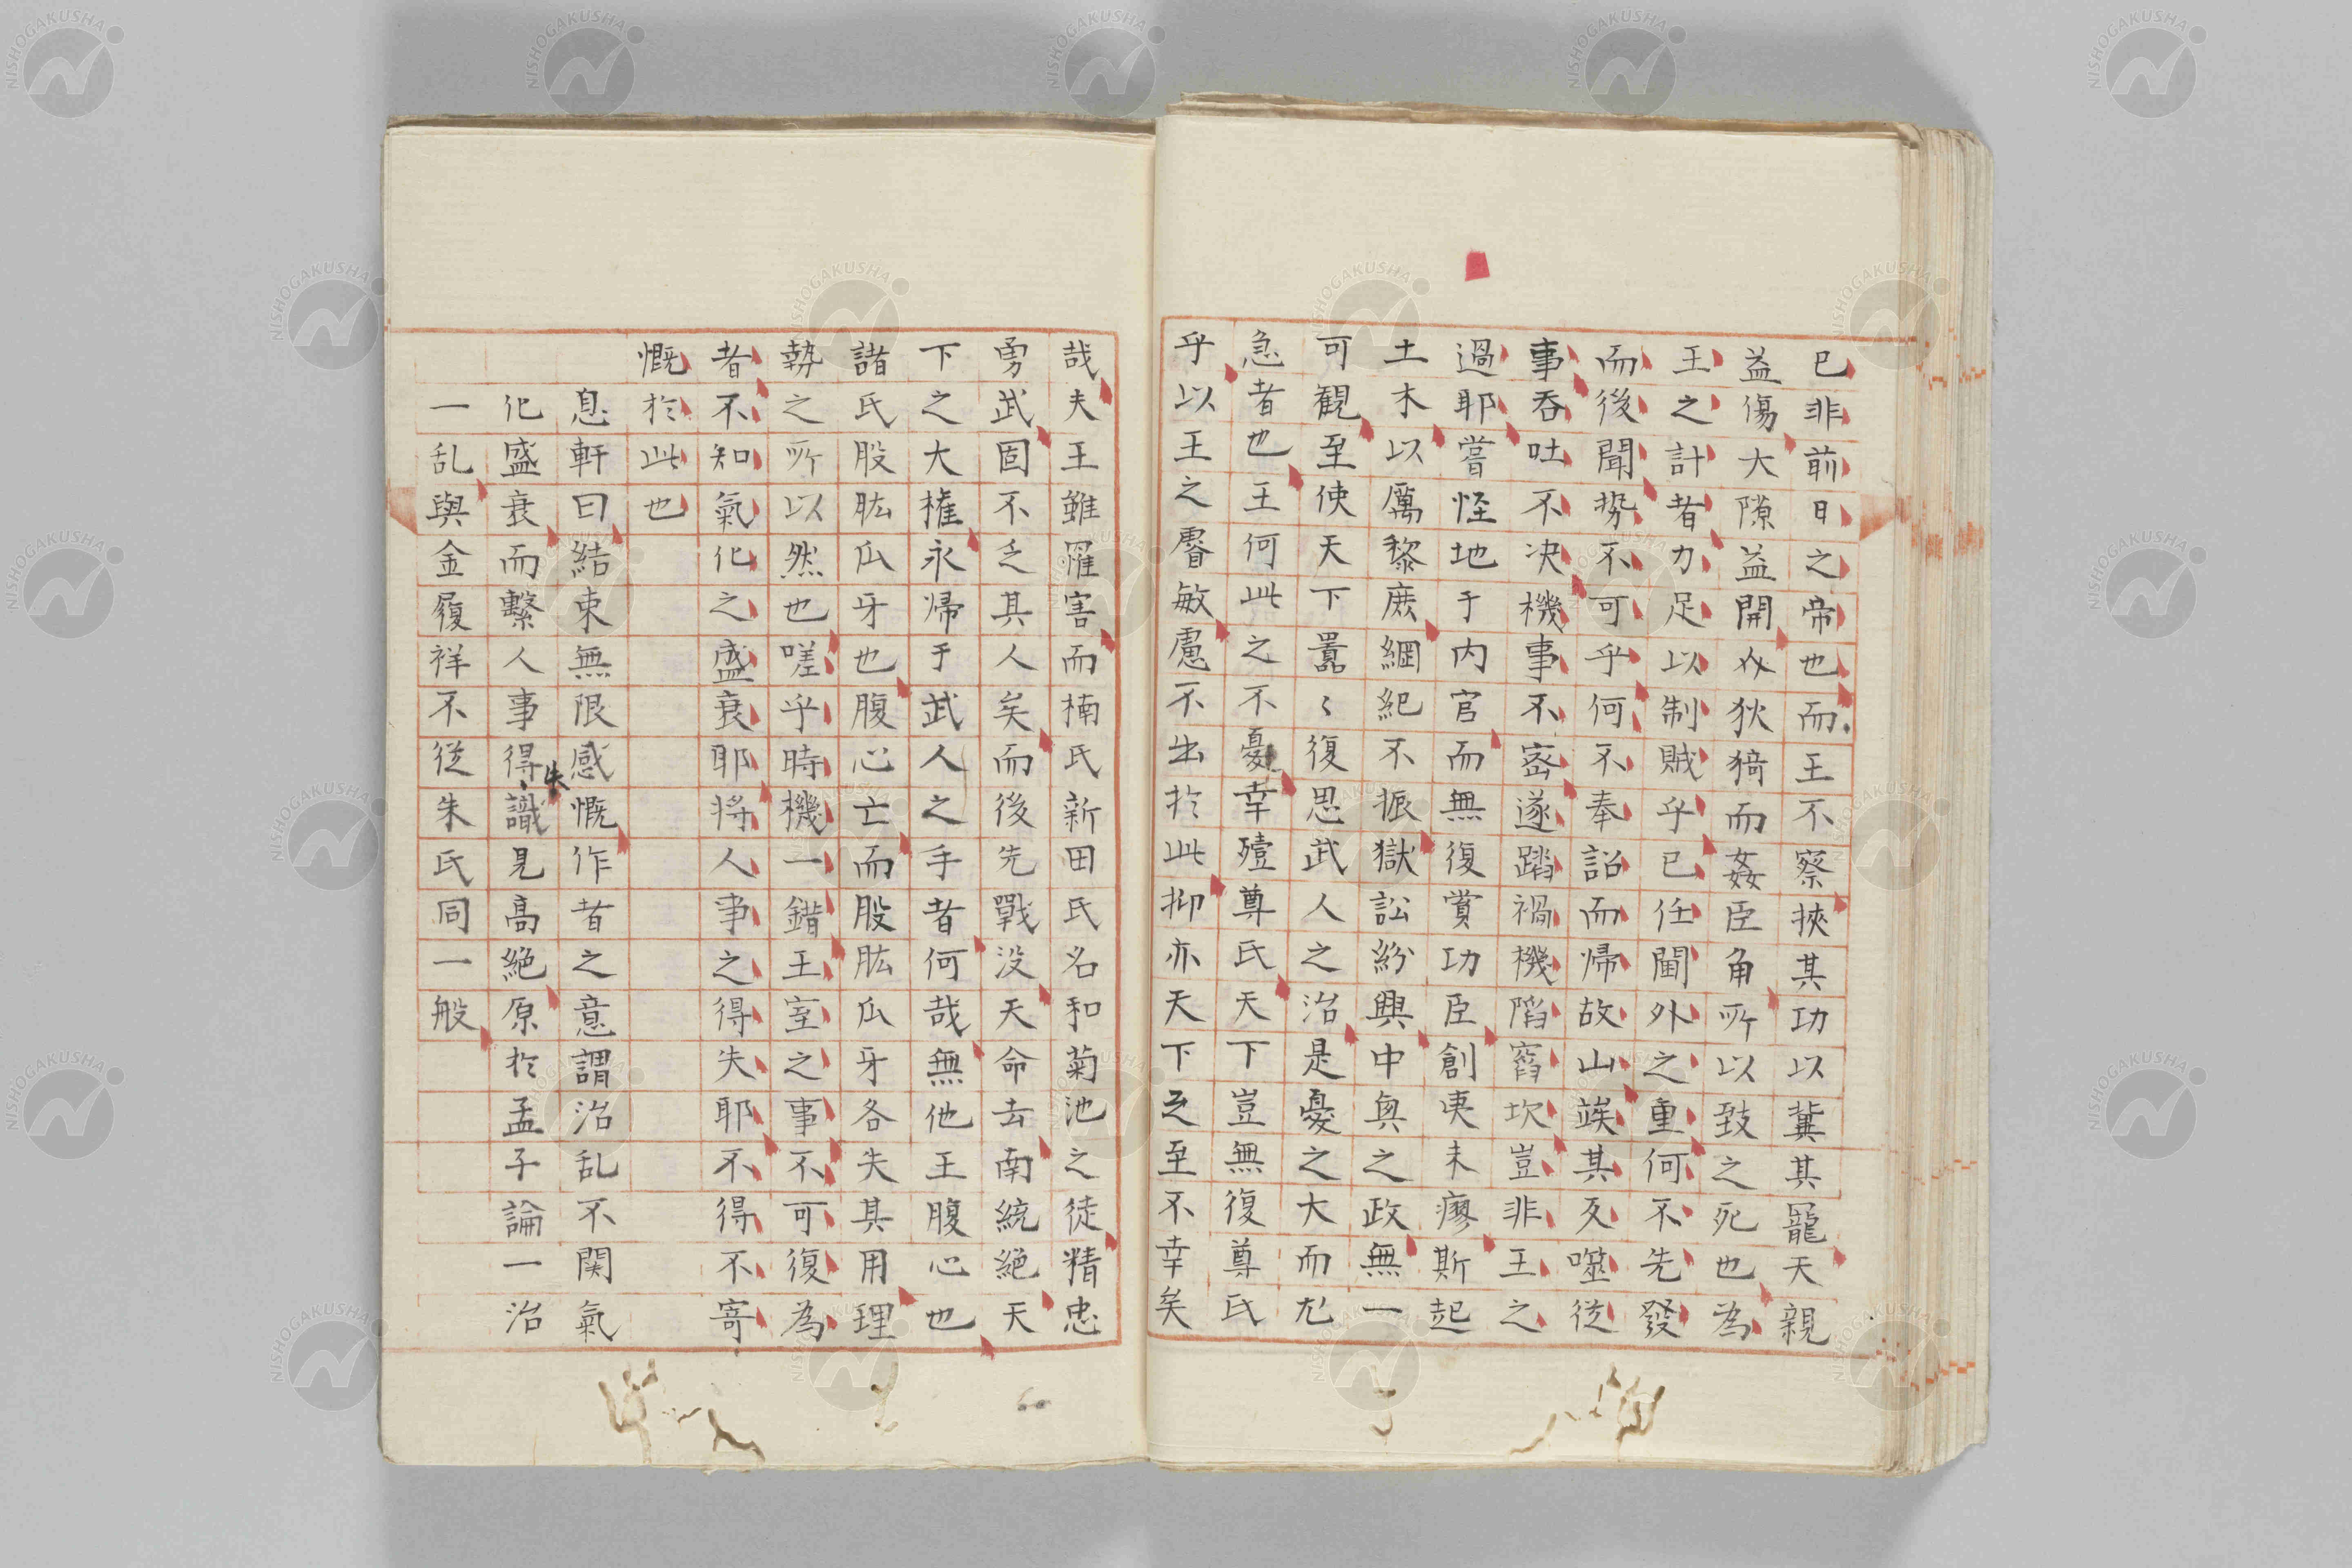 已非前日之帝也而王不察挾其功以冀其寵天親
益傷大隙益開㕚狄猗而姦臣角所以致之死也為
王之計者力足以制賊乎已任閫外之重何不先發
而後聞勢不可乎何不奉詔而帰故山竢其反噬従
事呑吐不决機事不密遂蹈禍機陷窞坎豈非王之
過耶嘗怪地于内官而無復賞功臣創夷未瘳斯起
土木以厲黎庶綱紀不振獄訟紛興中興之政無一
可観至使天下囂〻復思武人之治是憂之大而尤
急者也王何此之不憂幸殪尊氏天下豈無復尊氏
乎以王之睿敏慮不出於此抑亦天下之至不幸矣
哉夫王雖罹害而楠氏新田氏名和菊池之徒精忠
勇武固不乏其人矣而後先戰没天命去南統絶天
下之大権永帰于武人之手者何哉無他王腹心也
諸氏股肱爪牙也腹心亡而股肱爪牙各失其用理
勢之所以然也嗟乎時機一錯王室之事不可復為
者不知氣化之盛衰耶将人事之得失耶不得不寄
慨於此也
息軒曰結束無限感慨作者之意謂治乱不関氣
化盛衰而繋人事得失識見高絶原於孟子論一治
一乱與金履祥不従朱氏同一般